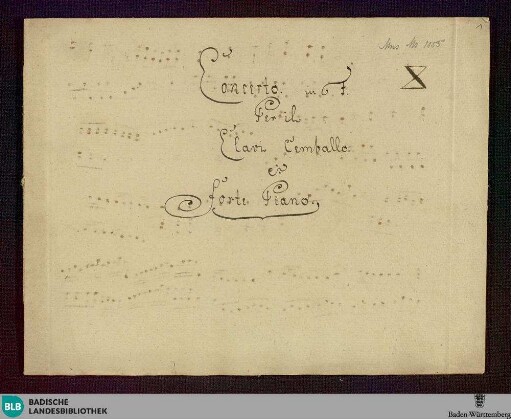 Mus. Ms 1055
1
Concerto. in G F.
Per il
Clavi Cemballo.
Forte Piano.
BLB BADISCHE
LANDESBIBLIOTHEK
Baden-Württemberg